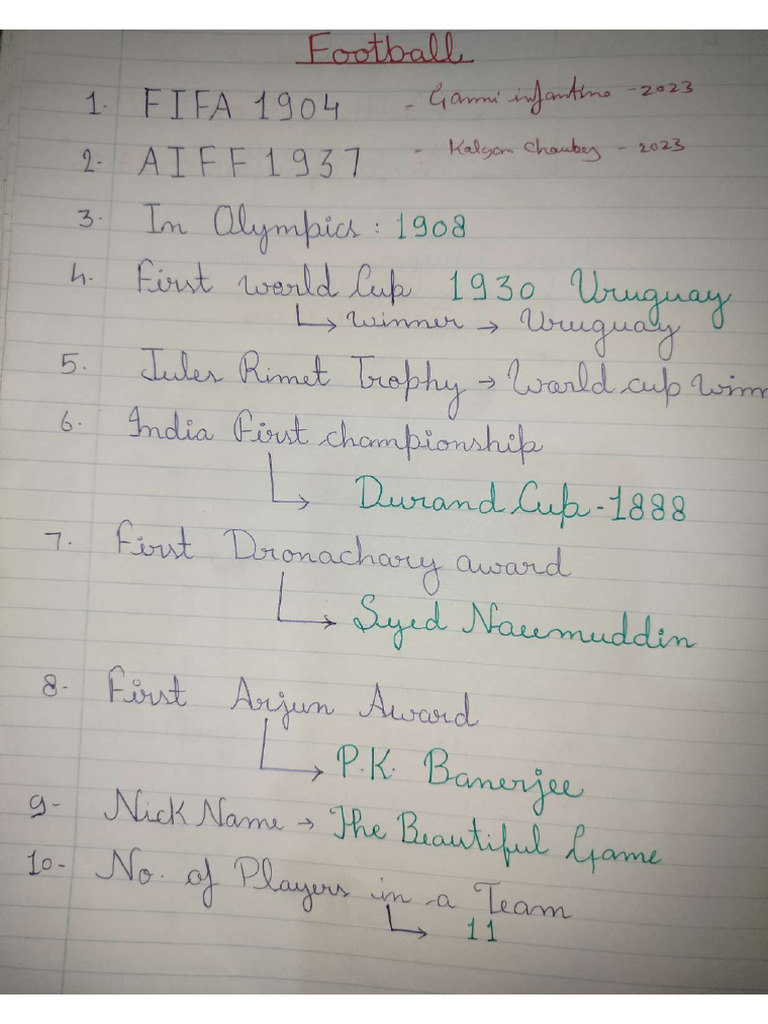 Football
1. FIFA 1904 - Gianni infantino - 2023
2. AIFF 1937 - Kalyan Chaubey - 2023
3. In Olympics : 1908
4. First world Cup 1930 Uruguay
↳ Winner → Uruguay
5. Jules Rimet Trophy → World cup winn
6. India First championship
↳ Durand Cup - 1888
7. First Dronachary award
↳ Syed Naeemuddin
8. First Arjun Award
↳ P.K. Banerjee
9- Nick Name → The Beautiful Game
10- No. of Players in a Team
↳ 11